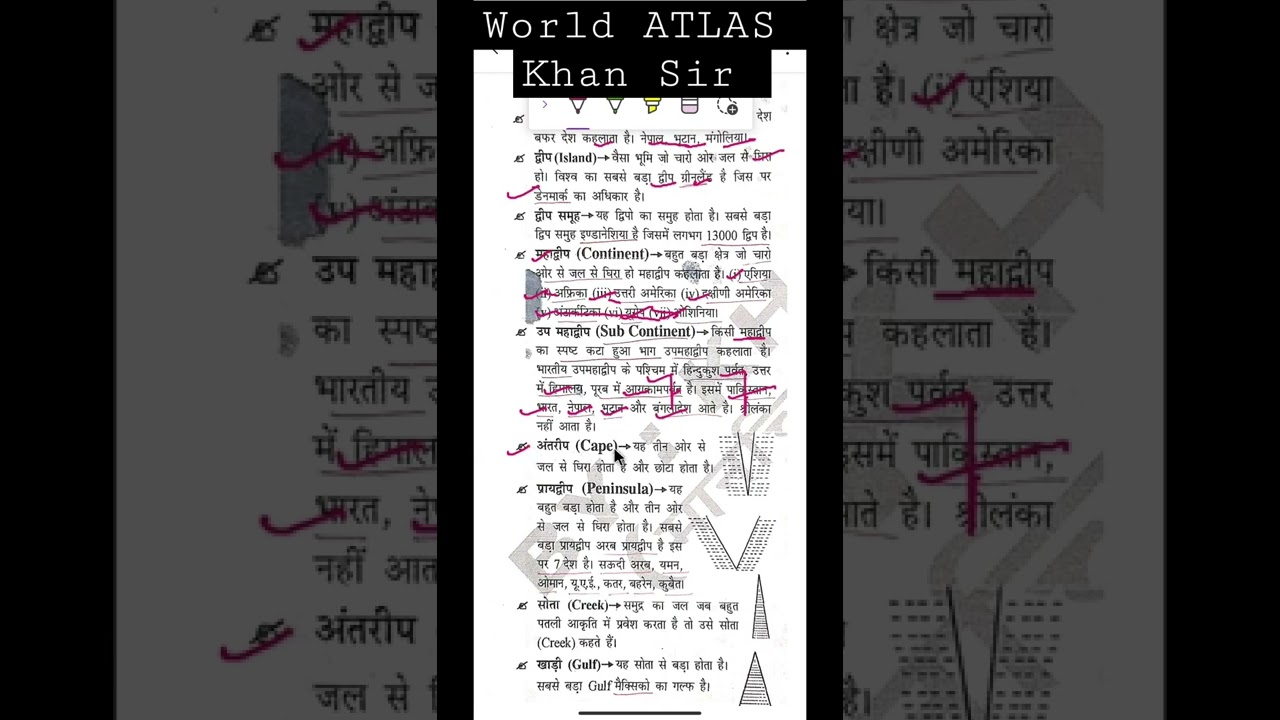 World ATLAS
Khan Sir
देश
बफर देश कहलाता है। नेपाल, भूटान, मंगोलिया।
द्वीप (Island)→वैसा भूमि जो चारो ओर जल से घिरा
हो। विश्व का सबसे बड़ा द्वीप ग्रीनलैंड है जिस पर
डेनमार्क का अधिकार है।
द्वीप समूह→यह द्विपो का समुह होता है। सबसे बड़ा
द्विप समुह इण्डानेशिया है जिसमें लगभग 13000 द्विप है।
महाद्वीप (Continent)→बहुत बड़ा क्षेत्र जो चारो
ओर से जल से घिरा हो महाद्वीप कहलाता है। (i) एशिया
(ii) अफ्रिका (iii) उत्तरी अमेरिका (iv) दक्षीणी अमेरिका
(v) अंटार्कटिका (vi) यूरोप (vii) ओशिनिया।
उप महाद्वीप (Sub Continent)→किसी महाद्वीप
का स्पष्ट कटा हुआ भाग उपमहाद्वीप कहलाता है।
भारतीय उपमहाद्वीप के पश्चिम में हिन्दुकुश पर्वत, उत्तर
में हिमालय, पूरब में आराकामपर्वत है। इसमें पाकिस्तान,
भारत, नेपाल, भूटान और बंगलादेश आते है। श्रीलंका
नहीं आता है।
अंतरीप (Cape)→यह तीन ओर से
जल से घिरा होता है और छोटा होता है।
प्रायद्वीप (Peninsula)→यह
बहुत बड़ा होता है और तीन ओर
से जल से घिरा होता है। सबसे
बड़ा प्रायद्वीप अरब प्रायद्वीप है इस
पर 7 देश है। सऊदी अरब, यमन,
ओमान, यू.ए.ई., कतर, बहरेन, कुवैत।
सोता (Creek)→समुद्र का जल जब बहुत
पतली आकृति में प्रवेश करता है तो उसे सोता
(Creek) कहते हैं।
खाड़ी (Gulf)→यह सोता से बड़ा होता है।
सबसे बड़ा Gulf मैक्सिको का गल्फ है।